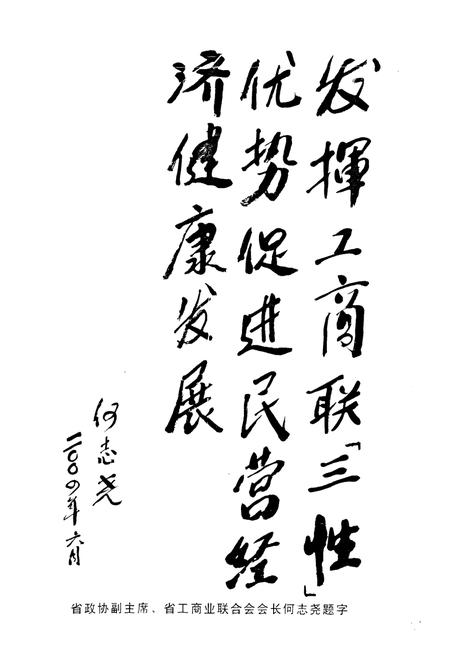 发揮工商联「三性」
优势促进民营经
济健康发展
何志尧
二〇〇四年六月
省政协副主席、省工商业联合会会长何志尧题字